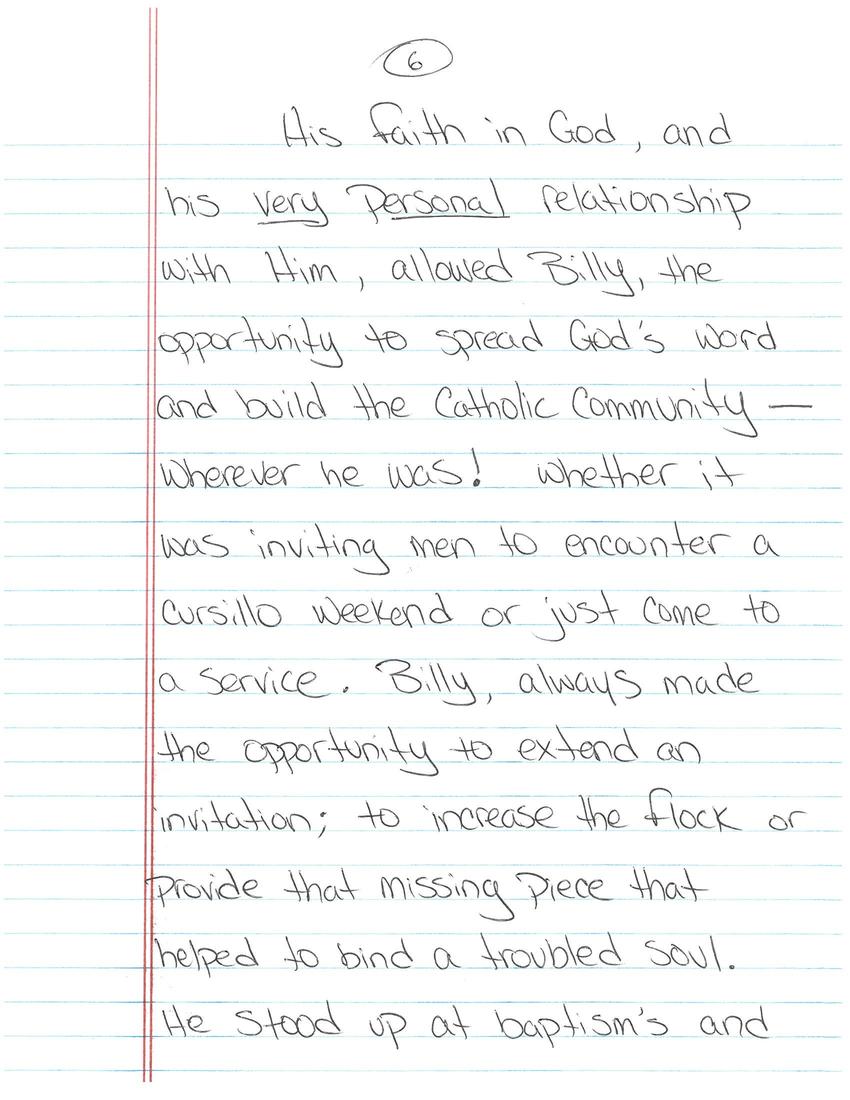 6
His faith in God, and
his very personal relationship
with Him, allowed Billy, the
opportunity to spread God's word
and build the Catholic Community —
wherever he was! Whether it
was inviting men to encounter a
Cursillo weekend or just come to
a service. Billy, always made
the opportunity to extend an
invitation; to increase the flock or
provide that missing piece that
helped to bind a troubled soul.
He stood up at baptism's and